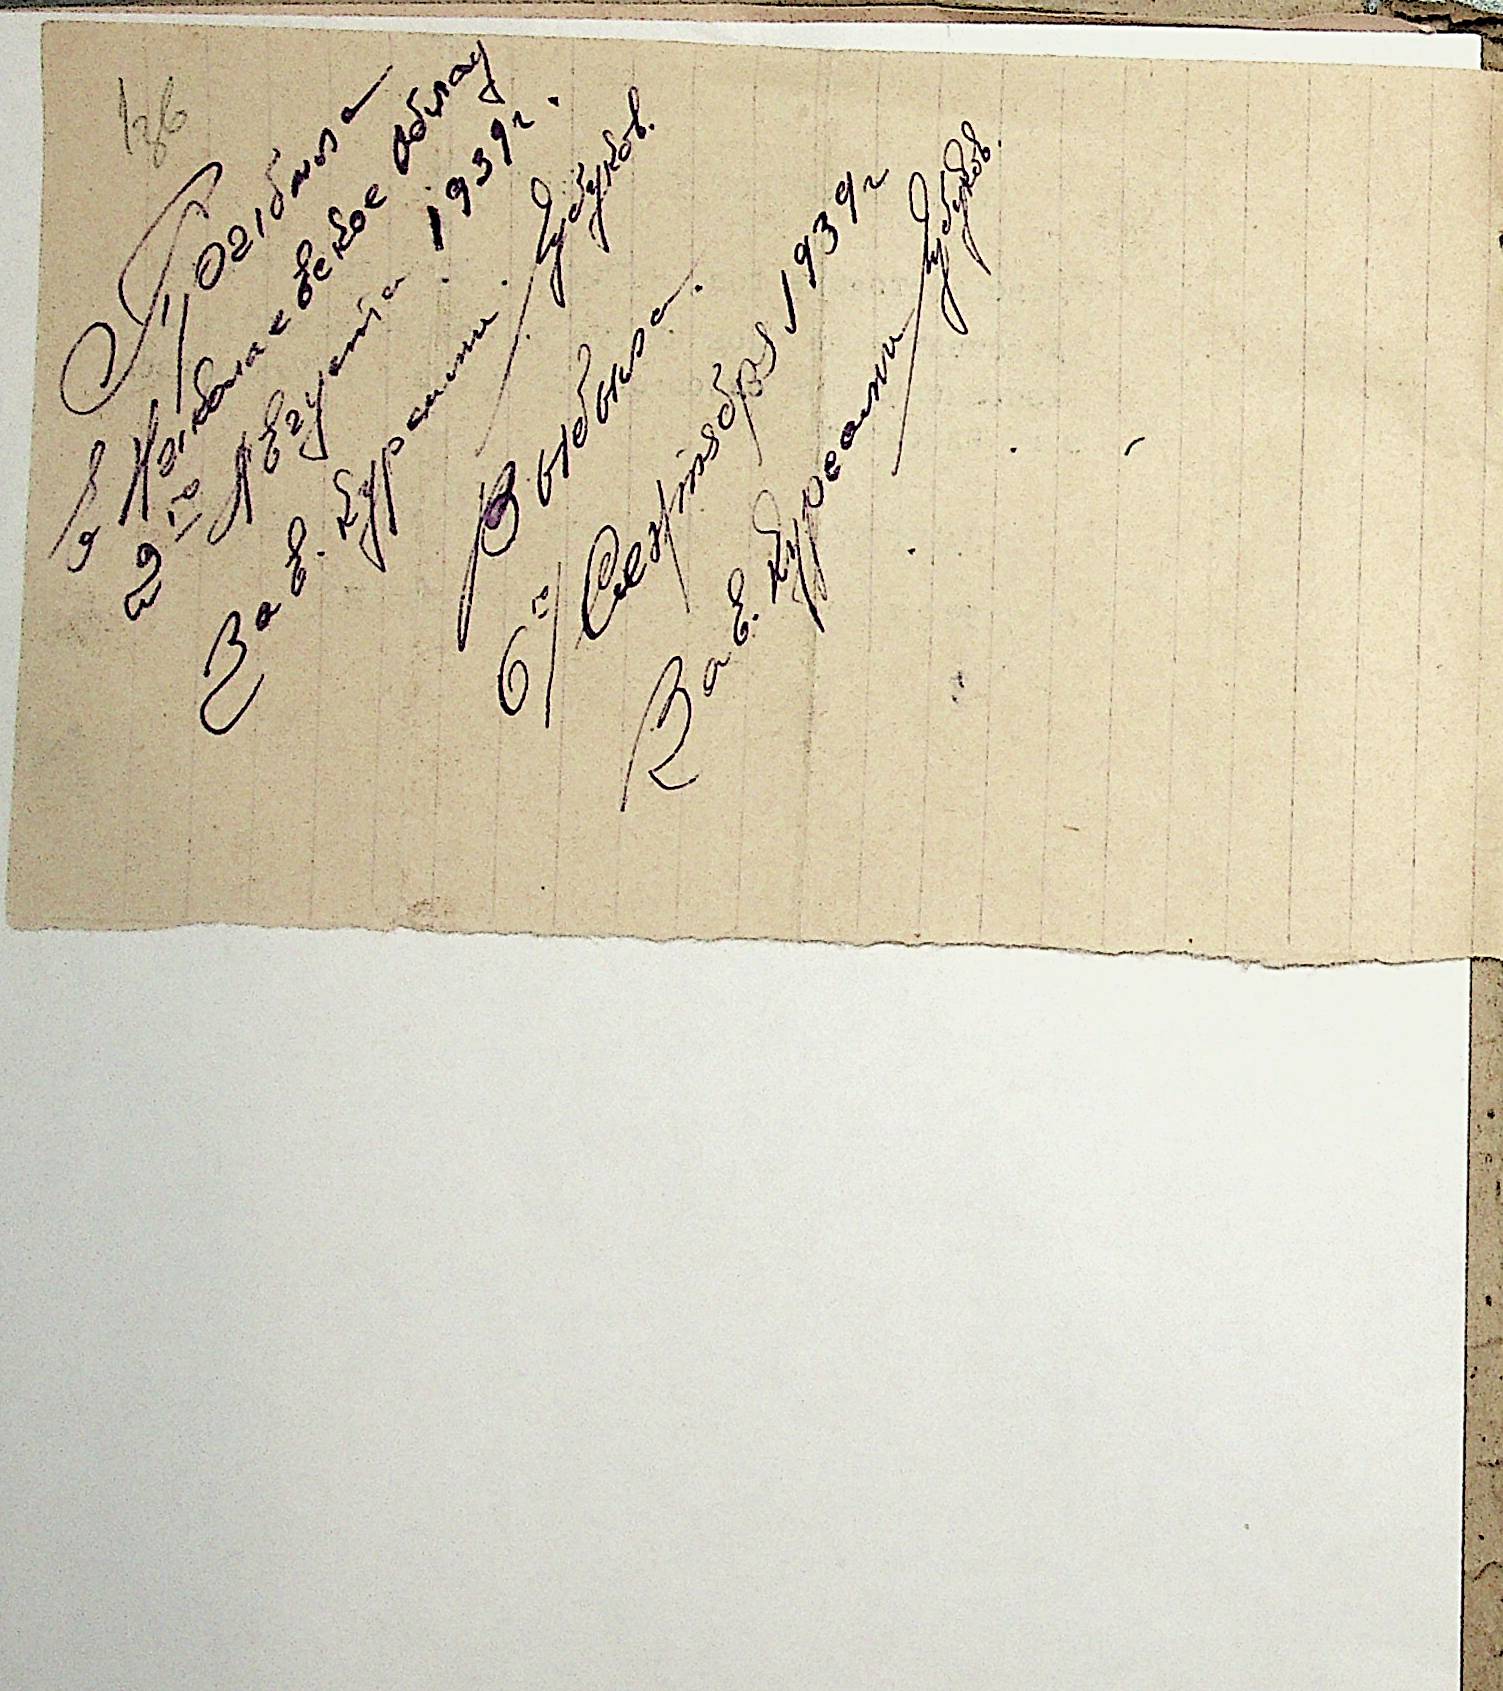 136
в Николаевское облау
2го Августа 1939 г.
Зав. Курсами. Чубуков.
Выбыла.
6го/ Сентября 1939 г
Зав. Курсами Чубуков.